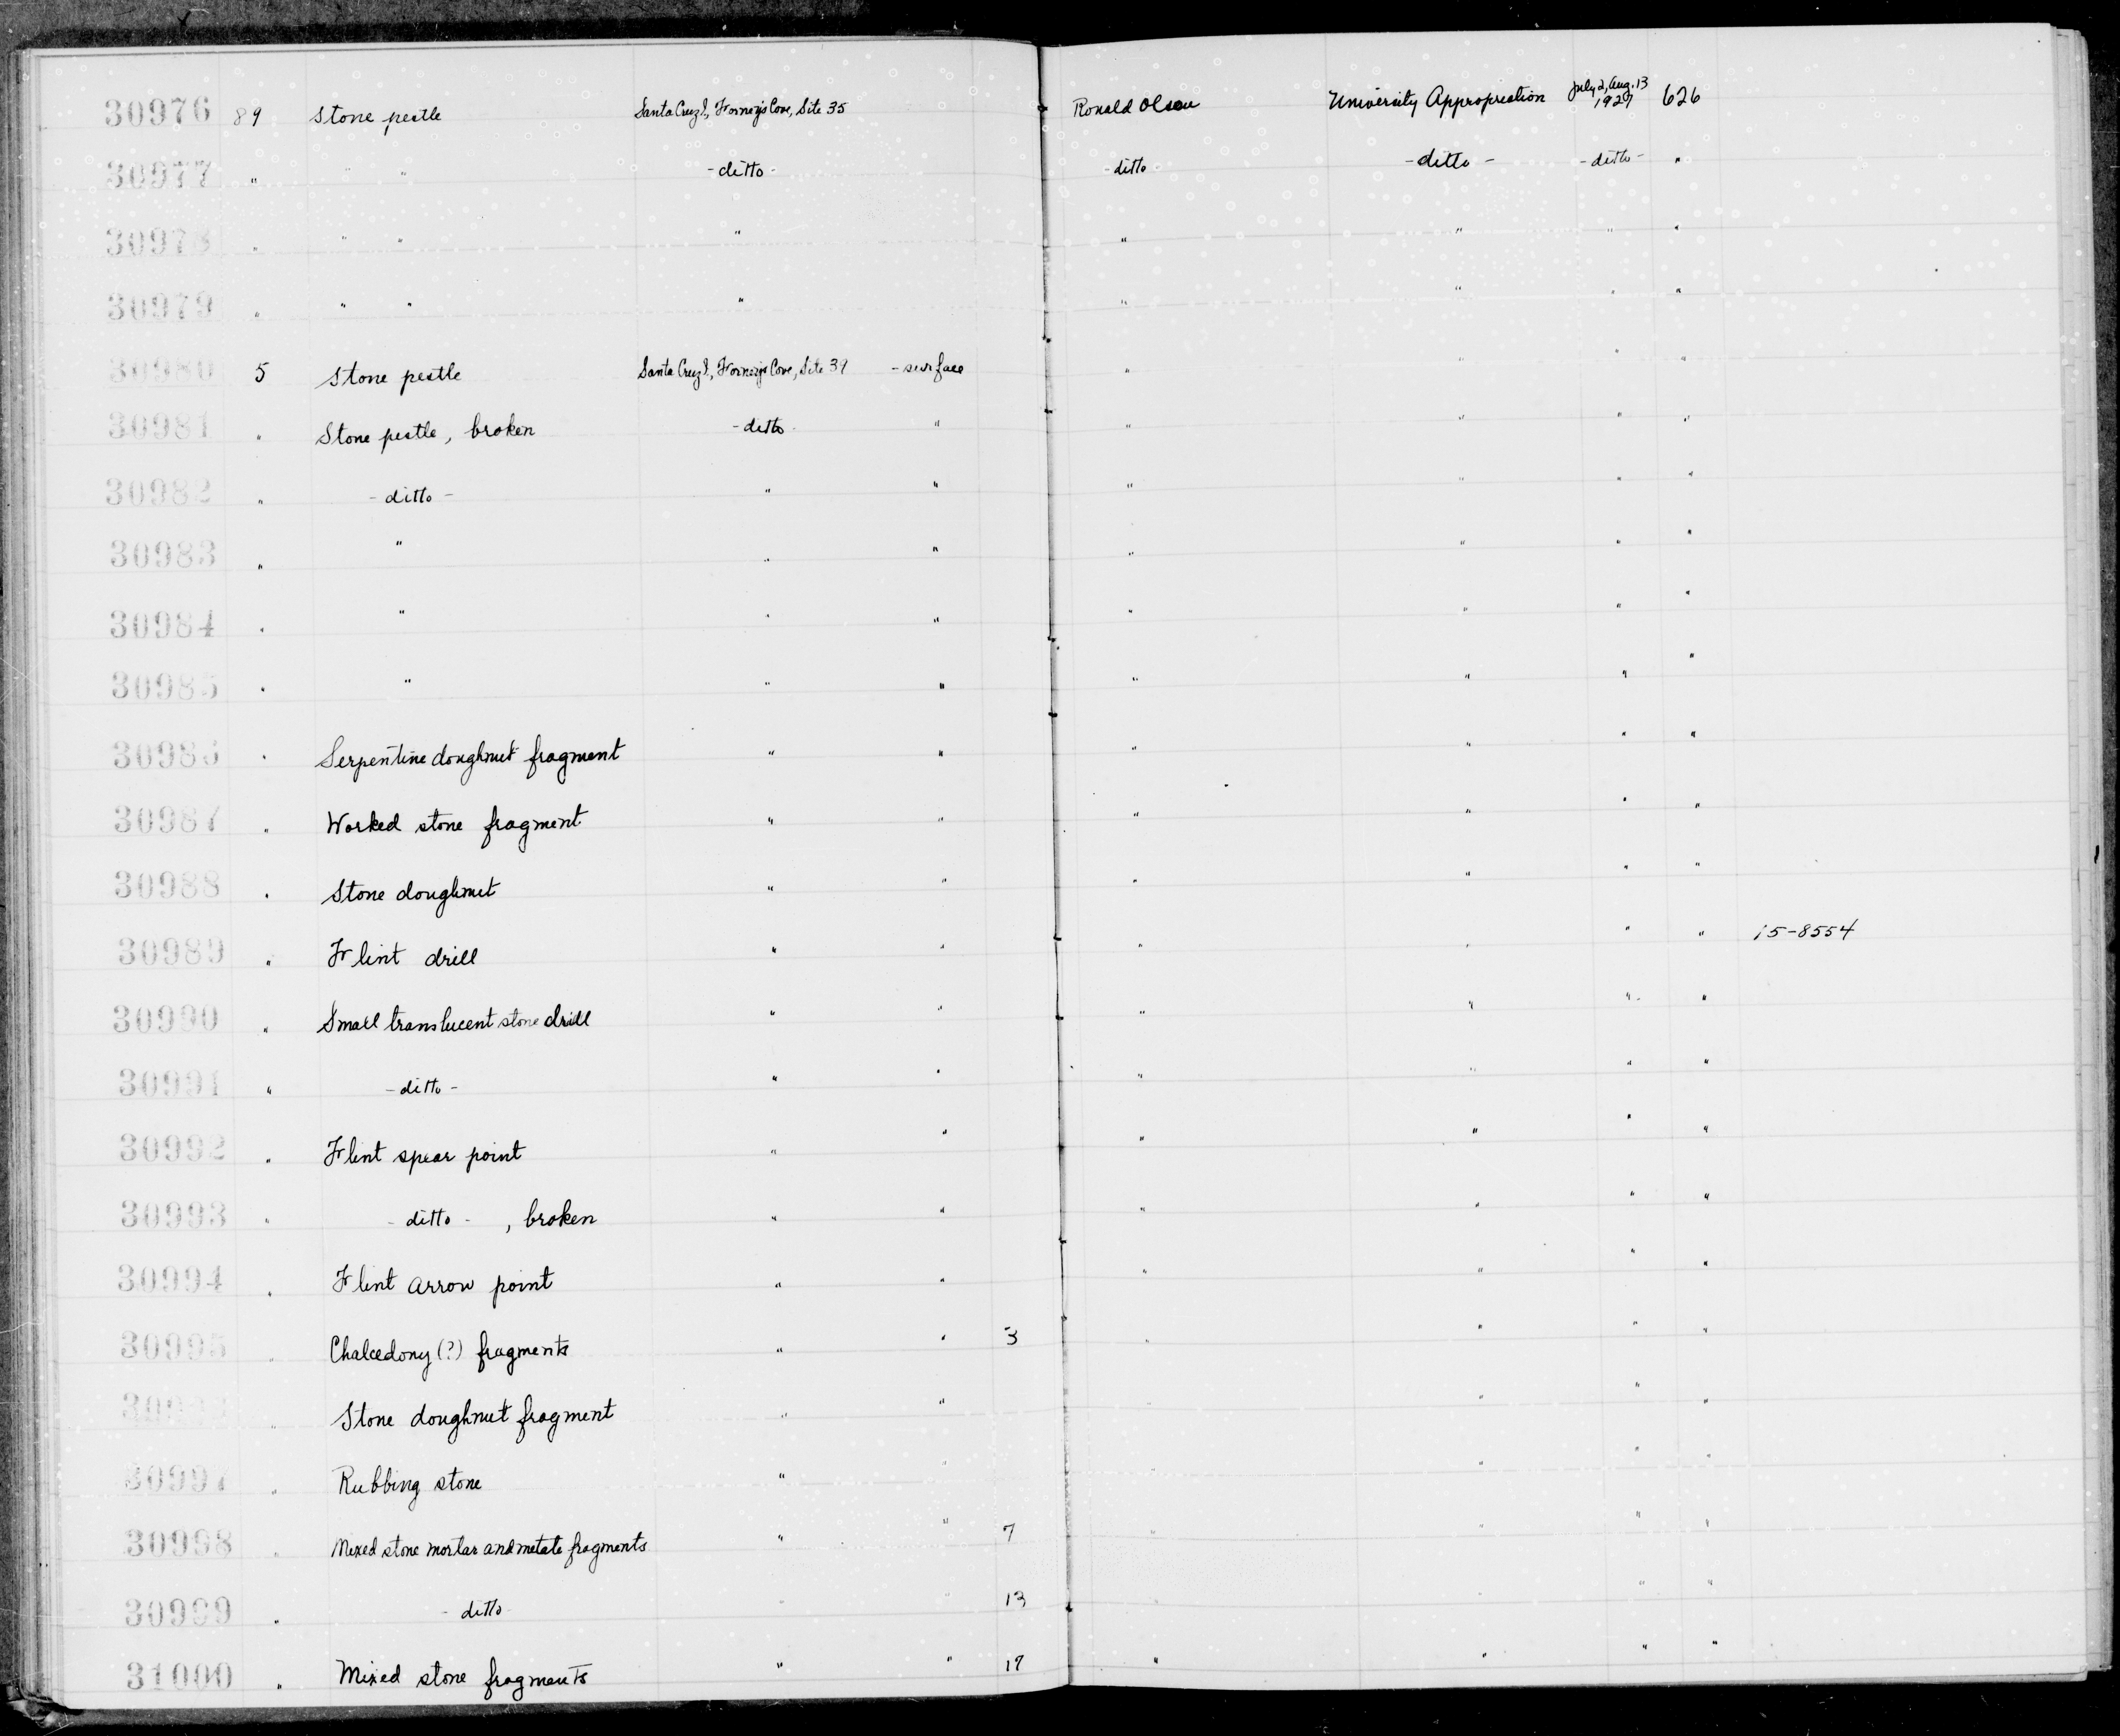 30976 89 Stone pestle Santa Cruz I., Forney's Cove, Site 35 Ronald Olson University Appropriation July 2, Aug. 13 1927 626
30977 " " " - ditto - - ditto - - ditto - - ditto - "
30978 " " " " " " " "
30979 " " " " " " " "
30980 5 Stone pestle Santa Cruz I., Forney's Cove, Site 39 - surface " " " "
30981 " Stone pestle, broken - ditto - " " " " "
30982 " - ditto - " " " " " "
30983 " " " " " " " "
30984 " " " " " " " "
30985 " " " " " " " "
30986 " Serpentine doughnut fragment " " " " " "
30987 " Worked stone fragment " " " " " "
30988 " Stone doughnut " " " " " "
30989 " Flint drill " " " " " " 15-8554
30990 " Small translucent stone drill " " " " " "
30991 " - ditto - " " " " " "
30992 " Flint spear point " " " " " "
30993 " - ditto - , broken " " " " " "
30994 " Flint arrow point " " " " " "
30995 " Chalcedony (?) fragments " " 3 " " " "
30996 " Stone doughnut fragment " " " " " "
30997 " Rubbing stone " " " " " "
30998 " Mixed stone mortar and metate fragments " " 7 " " " "
30999 " - ditto " " 13 " " "
31000 " Mixed stone fragments " " 17 " " " "